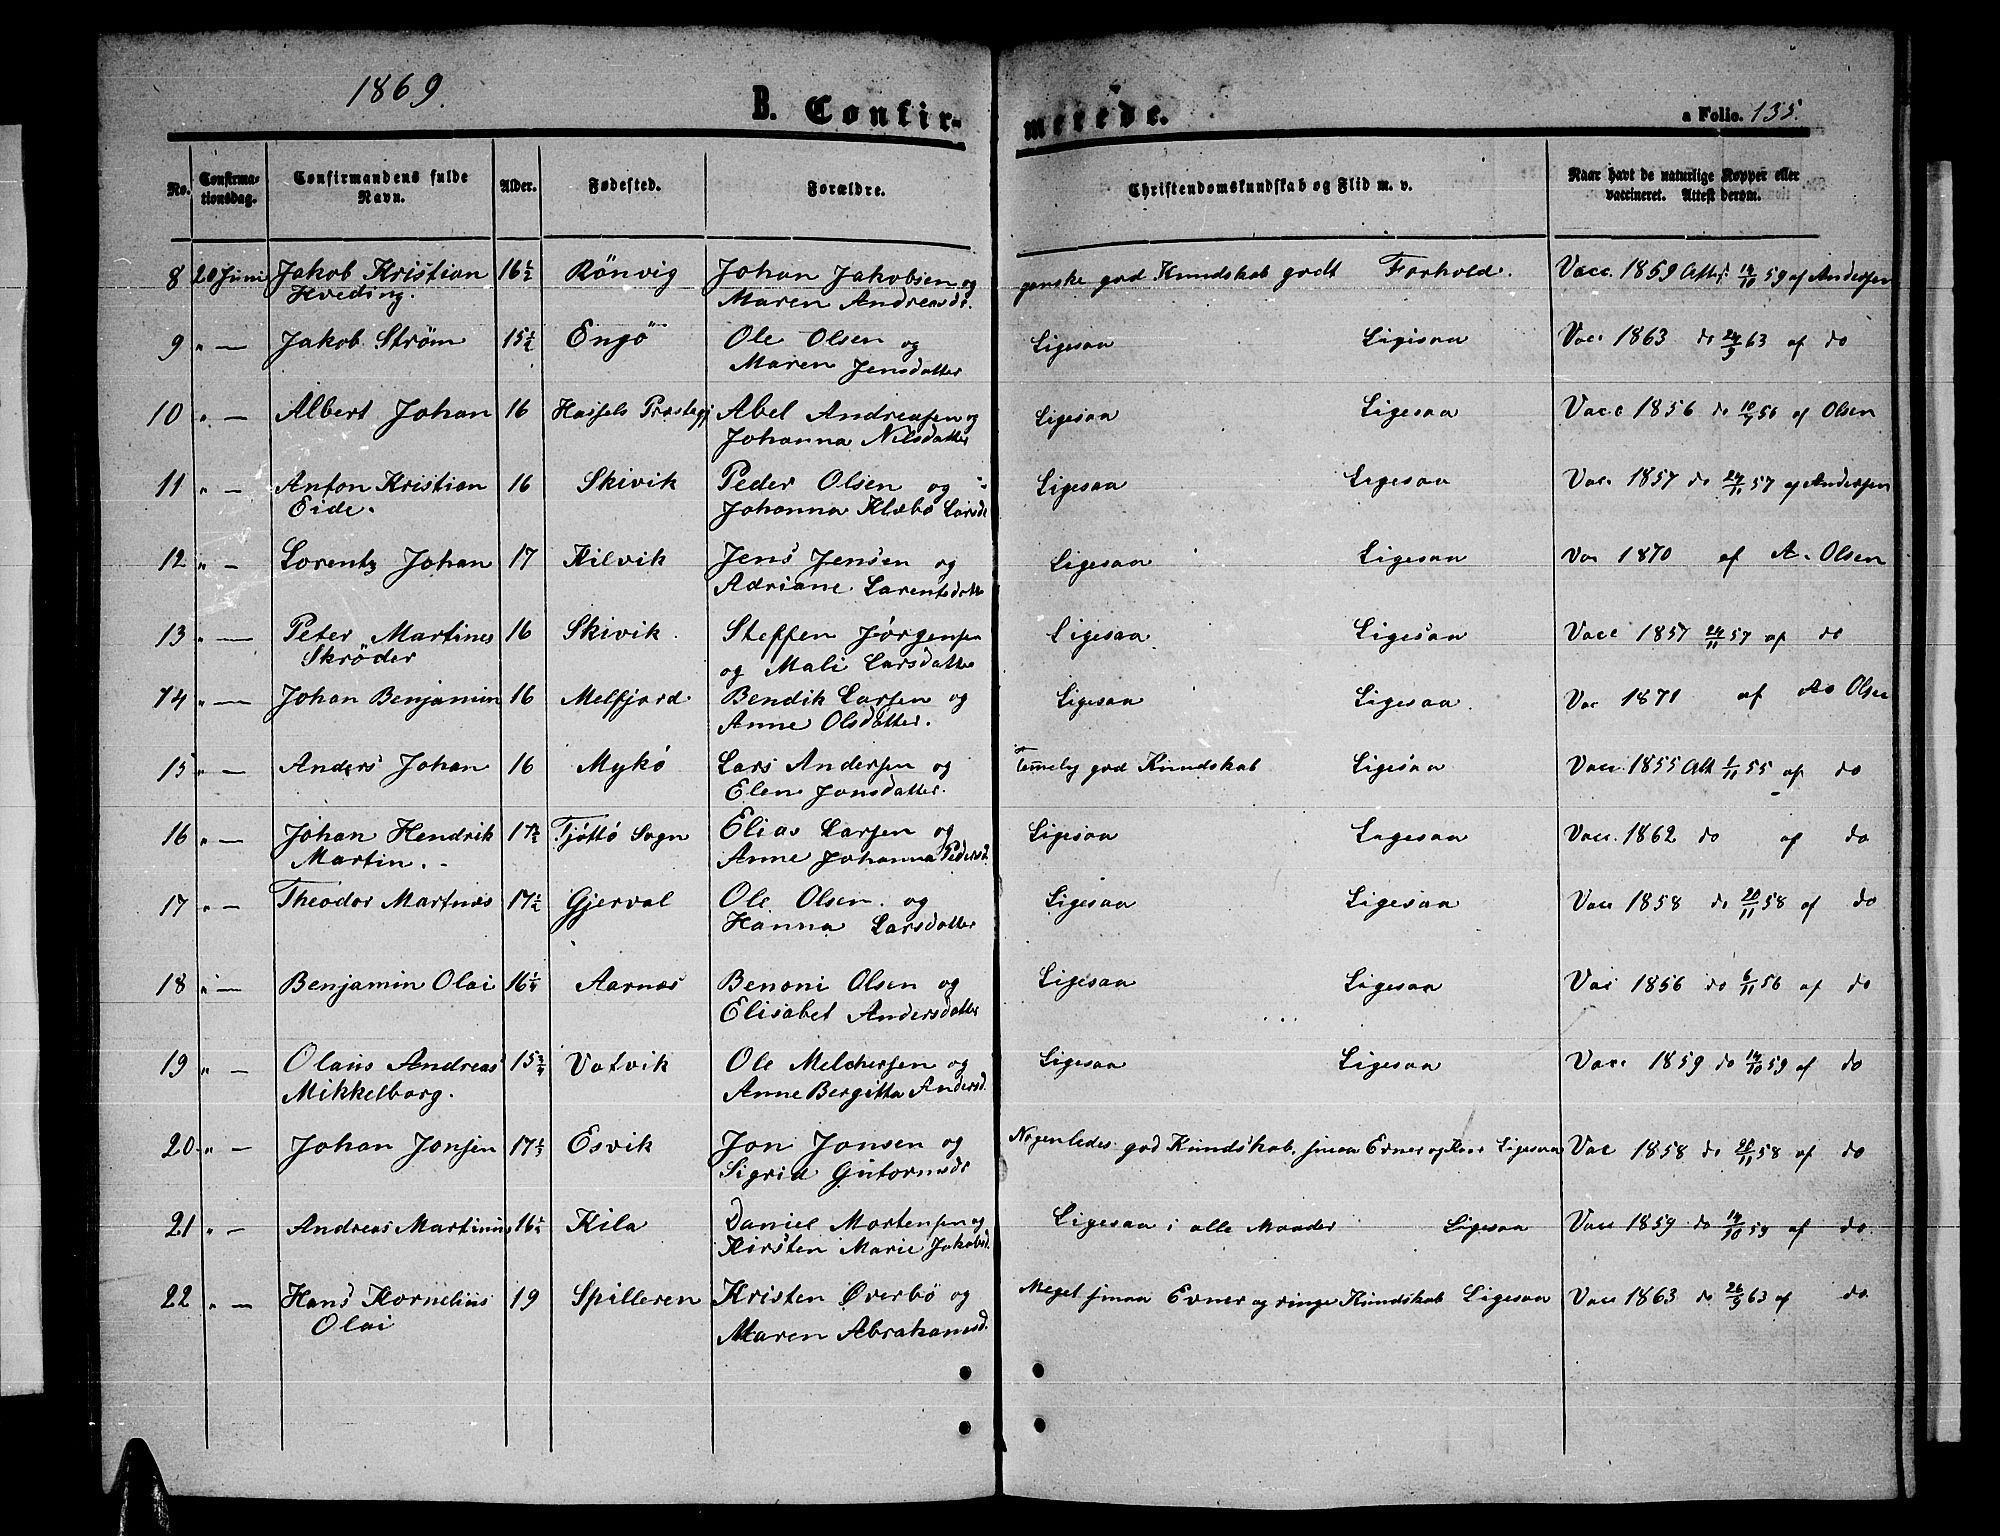 1869.
B. Confirmerede.
a Folio. 135.
No. Confirmationsdag. Confirmandens fulde Navn. Alder. Fødested. Forældre. Christendomskundskab og Flid m. v. Naar havt de naturlige Kopper eller vaccineret. Attest derom.
8 20 Juni Jakob Kristian 16½ Rönvig Johan Jakobsen og ganske god Kundskab godt Forhold. Vacc. 1859 Att. 14/10 59 af Andersen
Hveding. Maren Andreasd.
9 " — Jakob Strøm 15½ Engö Ole Olsen og Ligesaa Ligesaa Vac. 1863 do 24/9 63 af do
Maren Jensdatter
10 " — Albert Johan 16 Hassels Præstegj Abel Andreasen og Ligesaa Ligesaa Vacc 1856 do 10/9 56 af Olsen
Johanna Nilsdatter
11 " — Anton Kristian 16 Skivik Peder Olsen og Ligesaa Ligesaa Vac. 1857 do 24/11 57 af Andersen
Eide. Johanna Klæbo Larsd
12 " — Lorentz Johan 17 Kilvik Jens Jensen og Ligesaa Ligesaa Vac 1870 af A. Olsen
Adriane Larentsdatte
13 " — Peter Martines 16 Skivik. Steffen Jørgensen Ligesaa Ligesaa Vacc 1857 24/11 57 af do
Skrøder og Mali Larsdatte
14 " — Johan Benjamin 16 Melfjord Bendik Larsen og Ligesaa Ligesaa Vac 1871 af As Olsen
Anne Olsdatter.
15 " — Anders Johan 16 Mykó Lars Andersen og Temelig god Kundskab Ligesaa Vacc. 1855 Att 1/11 55 af do
Elen Jonsdatter.
16 " — Johan Hendrik 17½ Tjöttö Sogn Elias Larsen og Ligesaa Ligesaa Vacc. 1862 do af do
Martin. Anne Johanna Pedersd.
17 " — Theodor Martines 17½ Gjerval Ole Olsen. og Ligesaa Ligesaa Vacc 1858 do 20/11 58 af do
Hanna Larsdatter
18 " — Benjamin Olai 16¼ Aarnæs Benoni Olsen og Ligesaa Ligesaa Vac 1856 do 6/11 56 af do
Elisabet Andersdatter
19 " — Olaus Andreas 15¾ Vatvik Ole Melchersen og Ligesaa Ligesaa Vacc 1859 do 14/10 59 af do
Mikkelborg. Anne Bergitta Andersd.
20 " — Johan Jonsen 17½ Esvik Jon Jonsen og Nogenledes god Kundskab, smaa Evner og Ligesaa Vac 1858 do 20/11 58 af do
Sigrid Gutormsd
21 " — Andreas Martinus 16½ Kila Daniel Mortensen og Ligesaa i alle Maader Ligesaa Vacc 1859 do 14/10 59 af do
Kirsten Marie Jakobsd.
22 " — Hans Kornelius 19 Spilleren Kristen Överbö og Meget smaa Evner og ringe Kundskab Ligesaa Vacc 1863 do 26/9 63 af do
Olai Maren Abrahamsd.